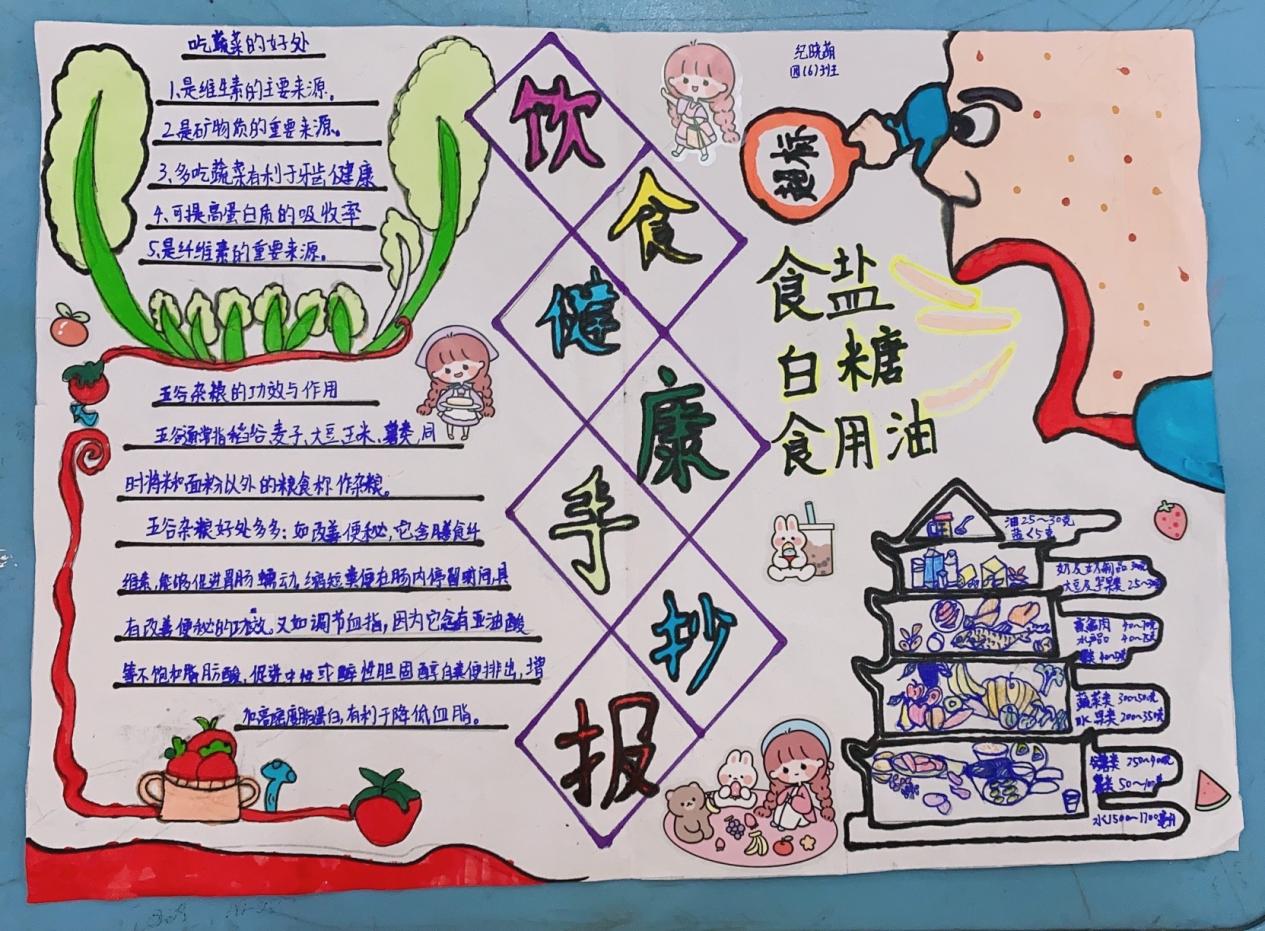 吃蔬菜的好处
1.是维生素的主要来源。
2.是矿物质的重要来源。
3.多吃蔬菜有利于牙齿健康
4.可提高蛋白质的吸收率
5.是纤维素的重要来源。
五谷杂粮的功效与作用
五谷通常指稻谷、麦子、大豆、玉米、薯类,同
时将米和面粉以外的粮食称作杂粮。
五谷杂粮好处多多:如改善便秘,它含膳食纤
维素,能够促进胃肠蠕动,缩短粪便在肠内停留时间,具
有改善便秘的功效。又如调节血指,因为它含有亚油酸
等不饱和脂肪酸,促进中性或酸性胆固醇自粪便排出,增
加高密度脂蛋白,有利于降低血脂。
饮食健康手抄报
纪晓萌
四(6)班
食盐
白糖
食用油
油25~30克
盐<5克
奶及奶制品
大豆及坚果类 25~
畜禽肉 40~
水产品 40~75克
蔬菜类 300~500克
水果类 200~350克
谷薯类 250~400克
薯类 50~100克
水1500~1700毫升